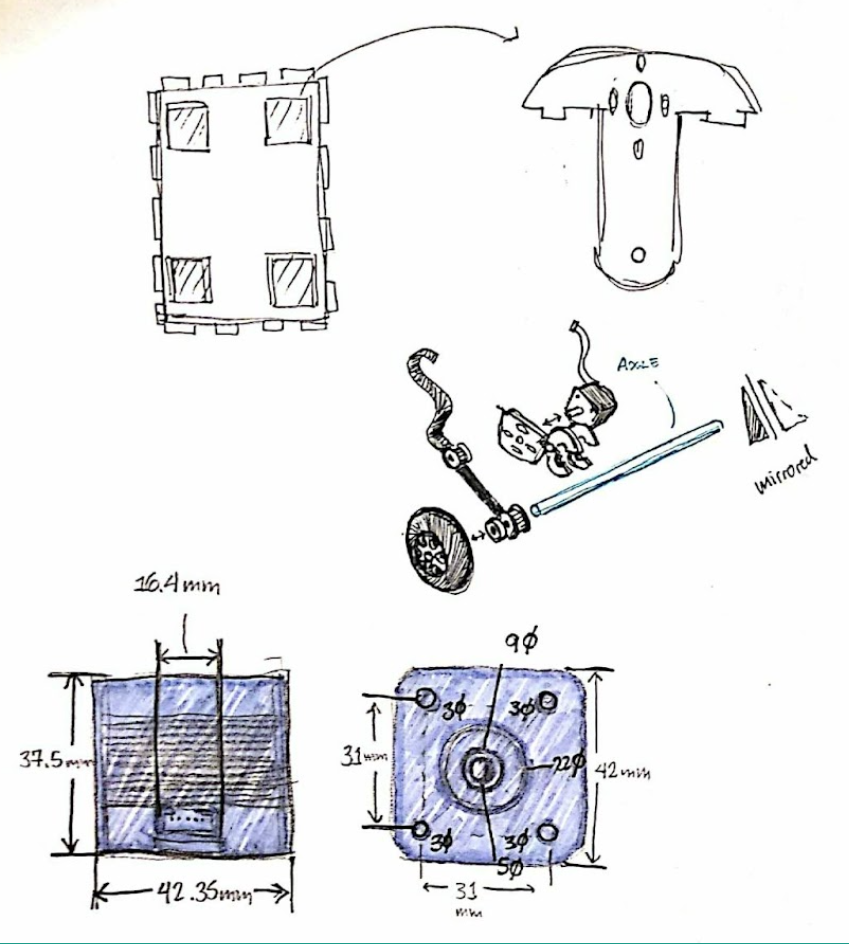 AXLE
mirrored
16.4mm
37.5mm
42.35mm
9Ø
3Ø
3Ø
31mm
22Ø
42mm
3Ø
3Ø
5Ø
31
mm